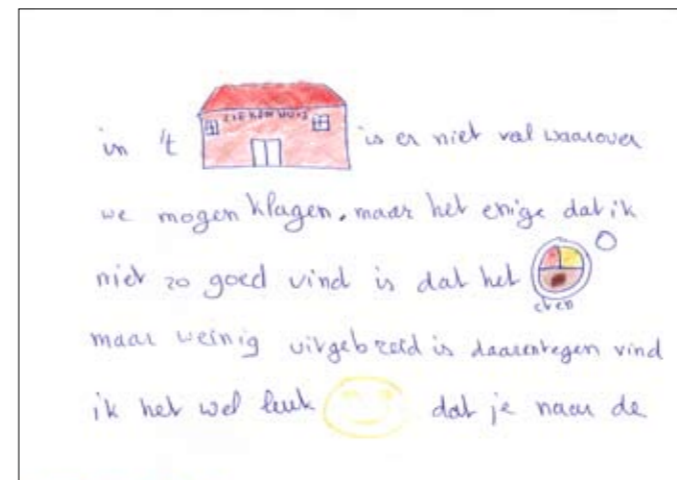 ZIEKENHUIS
in 't is er niet val waarover
we mogen klagen, maar het enige dat ik
niet zo goed vind is dat het
eten
maar weinig uitgebreid is daarentegen vind
ik het wel leuk dat je naar de